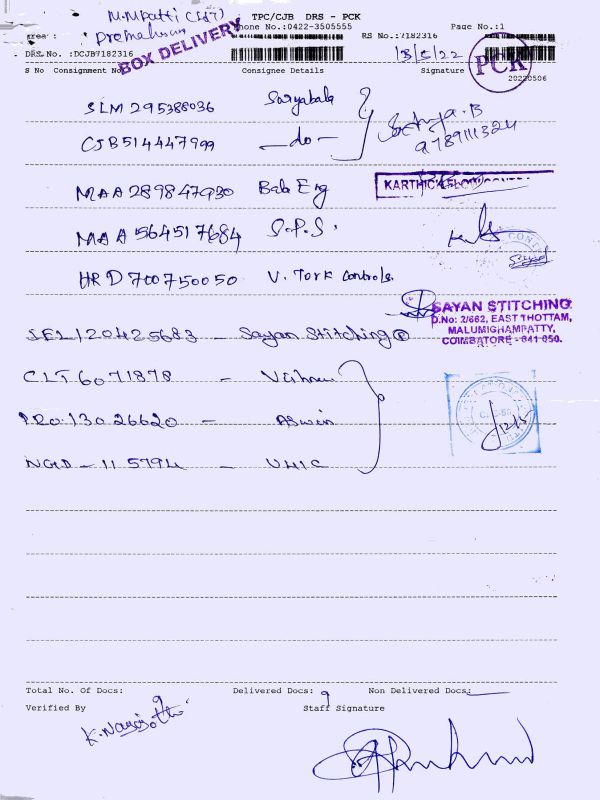 M.Mpatti (
TPC/CJB DRS - PCK
Page No.:1
Area :
Phone No.:0422-3505555
RS No.:7182316
BOX DELIVERY
DRS No. :DCJB7182316
PCK
20220506
S No Consignment No
Consignee Details
Signature
SLM 295388036 Suryabala
CJB514447999 —do—
9789111324
MAA 289847930 Bala Eng
KARTHICK FLOW
MAA 564517684 S.P.S.
HRD 700750050 V. Tork Controls.
SAYAN STITCHING
D.No: 2/662, EAST THOTTAM,
MALUMIGHAMPATTY,
COIMBATORE - 641 050.
SEL120425683 — Sayan Stitching
CLT 6071878 —
PRO 130 26620 — Aswin
NGD — 115794 — VHIC
Total No. Of Docs: 9
Delivered Docs: 9
Non Delivered Docs:
Verified By
Staff Signature